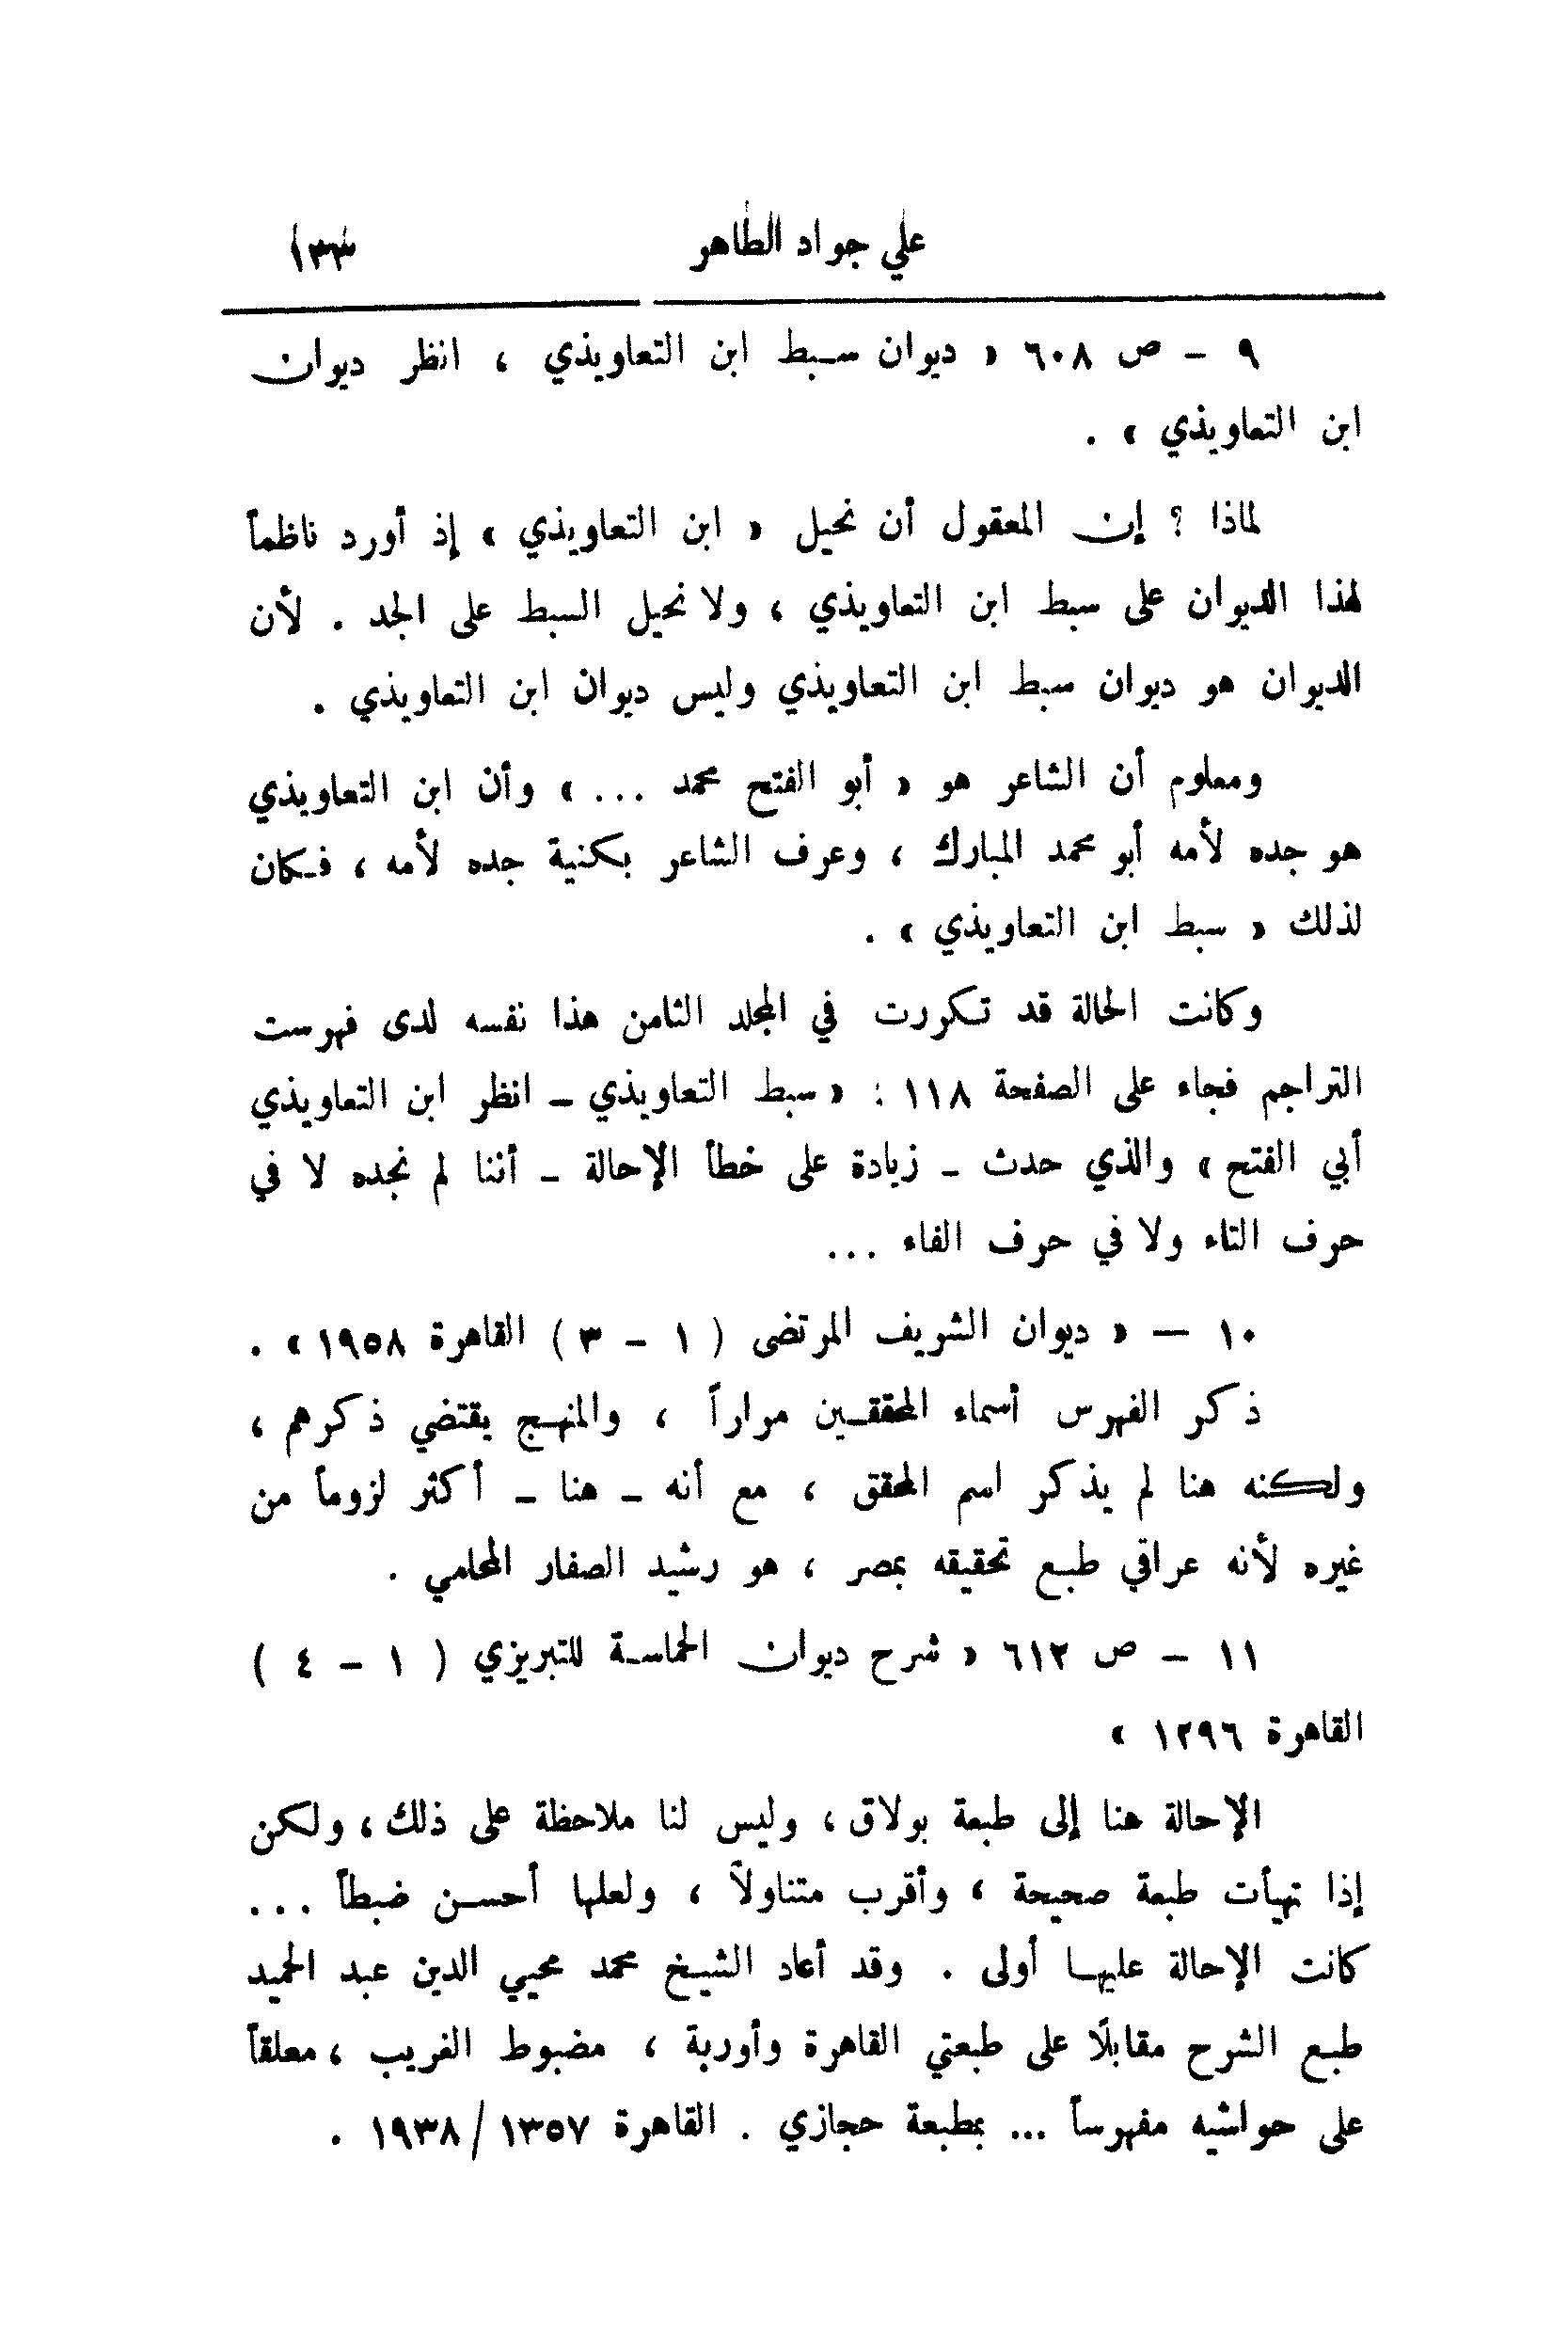 علي جواد الطاهر ١٣٣
٩ – ص ٦٠٨ « ديوان سبط ابن التعاويذي ، انظر ديوان
ابن التعاويذي » .
لماذا ؟ إن المعقول أن نحيل « ابن التعاويذي » إذ أورد ناظماً
لهذا الديوان على سبط ابن التعاويذي ، ولا نحيل السبط على الجد . لأن
الديوان هو ديوان سبط ابن التعاويذي وليس ديوان ابن التعاويذي .
ومعلوم أن الشاعر هو « أبو الفتح محمد ... » وأن ابن التعاويذي
هو جده لأمه أبو محمد المبارك ، وعرف الشاعر بكنية جده لأمه ، فكان
لذلك « سبط ابن التعاويذي » .
وكانت الحالة قد تكررت في المجلد الثامن هذا نفسه لدى فهرست
التراجم فجاء على الصفحة ١١٨ : « سبط التعاويذي – انظر ابن التعاويذي
أبي الفتح » والذي حدث – زيادة على خطأ الإحالة – أننا لم نجده لا في
حرف التاء ولا في حرف الفاء ...
١٠ — « ديوان الشريف المرتضى ( ١ – ٣ ) القاهرة ١٩٥٨ » .
ذكر الفهرس أسماء المحققين مراراً ، والمنهج يقتضي ذكرهم ،
ولكنه هنا لم يذكر اسم المحقق ، مع أنه – هنا – أكثر لزوماً من
غيره لأنه عراقي طبع تحقيقه بمصر ، هو رشيد الصفار المحامي .
١١ – ص ٦١٢ « شرح ديوان الحماسة للتبريزي ( ١ – ٤ )
القاهرة ١٢٩٦ »
الإحالة هنا إلى طبعة بولاق ، وليس لنا ملاحظة على ذلك ، ولكن
إذا تهيأت طبعة صحيحة ، وأقرب متناولاً ، ولعلها أحسن ضبطاً ...
كانت الإحالة عليها أولى . وقد أعاد الشيخ محمد محيي الدين عبد الحميد
طبع الشرح مقابلًا على طبعتي القاهرة وأوربة ، مضبوط الغريب ، معلقاً
على حواشيه مفهرساً ... بمطبعة حجازي . القاهرة ١٣٥٧/١٩٣٨ .